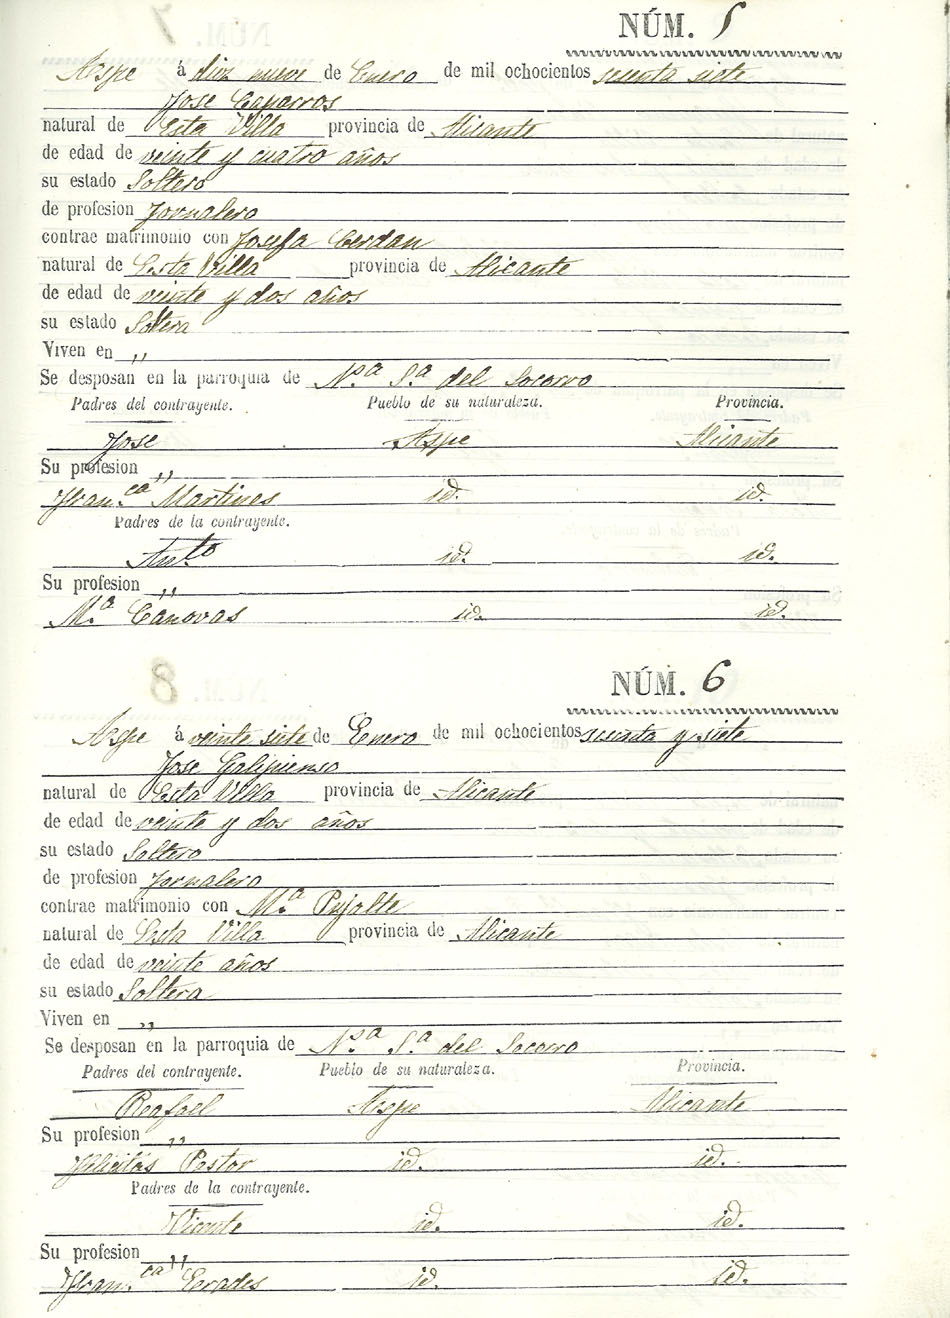 NÚM. 5
Aspe á diez nueve de Enero de mil ochocientos sesenta siete
Jose Caparros
natural de Esta Villa provincia de Alicante
de edad de veinte y cuatro años
su estado Soltero
de profesion Jornalero
contrae matrimonio con Josefa Cerdan
natural de Esta Villa provincia de Alicante
de edad de veinte y dos años
su estado Soltera
Viven en ,,
Se desposan en la parroquia de N.sa S.a del Socorro
Padres del contrayente. Pueblo de su naturaleza. Provincia.
Jose Aspe Alicante
Su profesion ,,
Fran.ca Martines id. id.
Padres de la contrayente.
Ant.o id. id.
Su profesion ,,
M.a Canovas id. id.
NÚM. 6
Aspe á veinte siete de Enero de mil ochocientos sesenta y siete
Jose Galipienso
natural de Esta Villa provincia de Alicante
de edad de veinte y dos años
su estado Soltero
de profesion Jornalero
contrae matrimonio con M.a Pujalte
natural de Esta Villa provincia de Alicante
de edad de veinte años
su estado Soltera
Viven en ,,
Se desposan en la parroquia de N.sa S.a del Socorro
Padres del contrayente. Pueblo de su naturaleza. Provincia.
Rafael Aspe Alicante
Su profesion ,,
Felicitas Pastor id. id.
Padres de la contrayente.
Vicente id. id.
Su profesion ,,
Fran.ca Erades id. id.